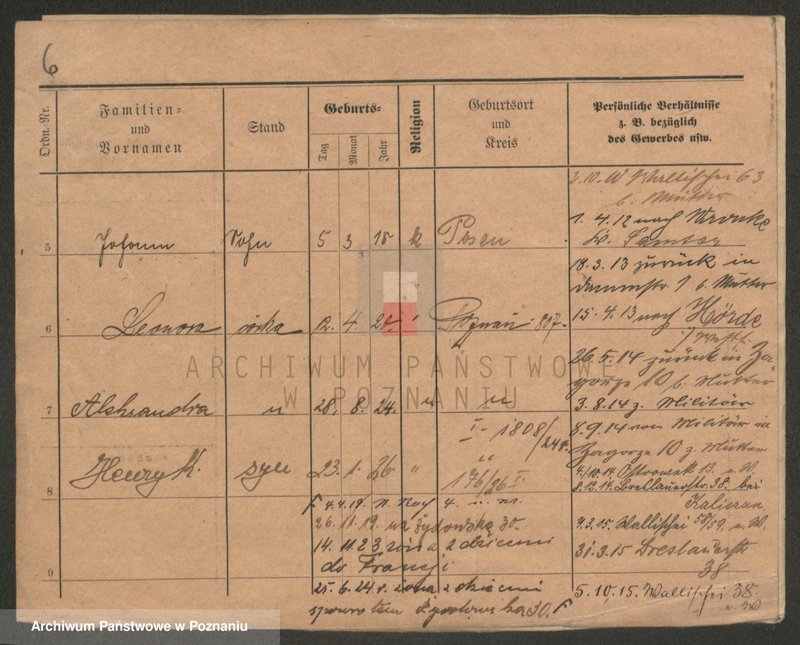 6
Ordn.-Nr.
Familien-
und
Vornamen
Stand
Geburts-
Tag
Monat
Jahr
Religion
Geburtsort
und
Kreis
Persönliche Verhältnisse
z. B. bezüglich
des Gewerbes usw.
3.10. Wallischei 63
b. Mutter
1.4.12 nach Wronke
Kr. Samter
5 Johann Sohn 5 3 18 k Posen
18.3.13 zurück in
Dammstr. 1 b. Mutter
6 Leonora córka 12. 4. 20 " Poznań 807.
15.4.13 nach Hörde
i/Westf.
26.5.14 zurück in Za-
gorze 10 b. Mutter
7 Aleksandra " 28. 8. 24. " "
I. 1808/24 r.
3.8.14 z. Militär
6.9.14 vom Militär in
Zagorze 10 z. Mutter
8 Henryk. syn 23. 1. 26 " "
176/26 I.
4/10.14 Ostrowek 13.
8.12.14. Breslauerstr. 38. bei
4. 4. 19.
26. 11. 19. na Żydowską 30.
4.3.15. Wallischei 58/59.
14. 11. 23 żona z dziećmi
do Francji
31.3.15 Breslauerstr
38
9
25. 6. 24 r. żona z dziećmi
spowrotem Żydowska 30.
5.10.15. Wallischei 38.
ARCHIWUM PAŃSTWOWE
W POZNANIU
Archiwum Państwowe w Poznaniu